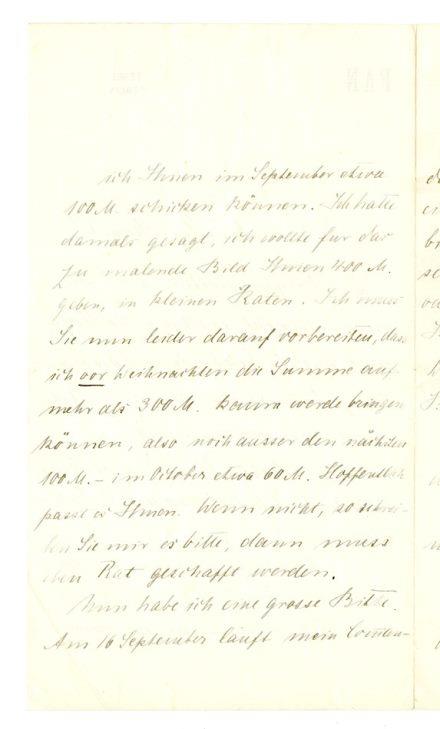 ich Ihnen im September etwa
100 M. schicken können. Ich hatte
damals gesagt, ich wollte für das
zu malende Bild Ihnen 400 M.
geben, in kleinen Raten. Ich muss
Sie nun leider darauf vorbereiten, dass
ich vor Weihnachten die Summe auf
mehr als 300 M. kaum werde bringen
können, also noch ausser den nächsten
100 M. – im October etwa 60 M. Hoffentlich
passt es Ihnen. Wenn nicht, so schrei-
ben Sie mir es bitte, dann muss
eben Rat geschafft werden.
Nun habe ich eine grosse Bitte.
Am 16 September läuft mein
PAN